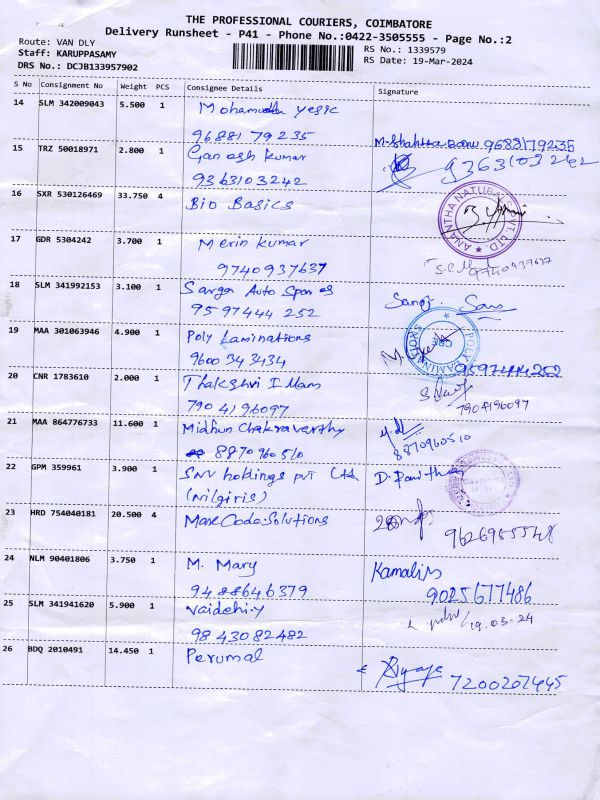 THE PROFESSIONAL COURIERS, COIMBATORE
Delivery Runsheet - P41 - Phone No.:0422-3505555 - Page No.:2
Route: VAN DLY
RS No.: 1339579
Staff: KARUPPASAMY
RS Date: 19-Mar-2024
DRS No.: DCJB133957902
S No Consignment No Weight PCS Consignee Details Signature
14 SLM 342009043 5.500 1 Mohamudha yesic
96881 79235 9688179235
15 TRZ 50018971 2.800 1 Ganesh Kumar
9363103242 9363103242
16 SXR 530126469 33.750 4 Bio Basics
ANANTHA NATURALS PVT. LTD.
17 GDR 5304242 3.700 1 Merin Kumar
9740937637 9740937637
18 SLM 341992153 3.100 1 Sarga Auto Spares
9597444 252
19 MAA 301063946 4.900 1 Poly Laminations
POLY LAMINATIONS
9600 343434 9597444252
20 CNR 1783610 2.000 1 Thakshri I Mam
7904196097 7904196097
21 MAA 864776733 11.600 1 Midhun Chakraverthy
8870960510 8870960510
22 GPM 359961 3.900 1 SNV holdings pvt Ltd
(Nilgiris)
23 HRD 754040181 20.500 4 MaxCode Solutions
24 NLM 90401806 3.750 1 M. Mary Kamali M
9488646379 9025677486
25 SLM 341941620 5.900 1 Vaidehi.y
19.03.24
9843082482
26 BDQ 2010491 14.450 1 Perumal
7200207445